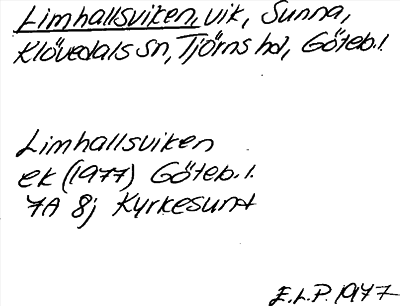 Limhallsviken, vik, Sunna,
Klövedals sn, Tjörns hd, Göteb. l.
Limhallsviken
ek (1977) Göteb. l.
7A 8j Kyrkesund
E.L.P. 1977